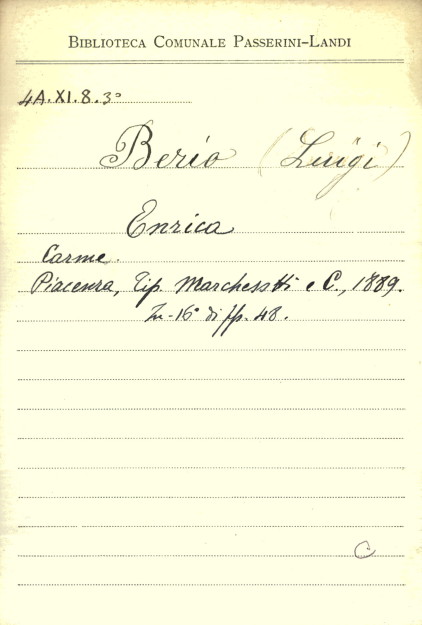 BIBLIOTECA COMUNALE PASSERINI-LANDI
4A.XI.8.3°
Berio (Luigi)
Enrica
Carme.
Piacenza, Tip. Marchesotti e C., 1889.
In-16° di pp. 48.
C